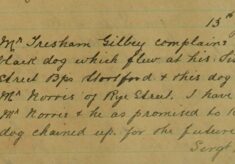 13th
Mr Tresham Gilbey complains
black dog which flew at his
Street Bps Stortford & this dog
Mr Norris of Rye Street. I have
Mr Norris & he as promised to k
dog chained up. for the future
Sergt.